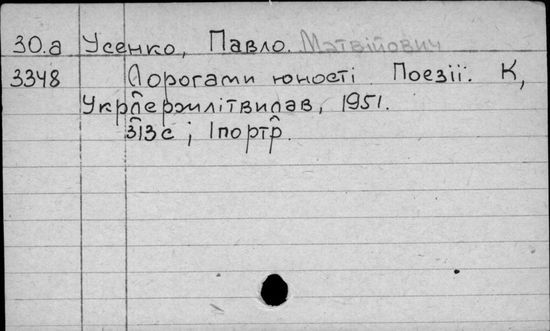 30.а Усенко, Павло. Матвійович
3348 Дорогами юності. Поезії. К,
Укрдержлітвидав, 1951.
313с; 1портр.